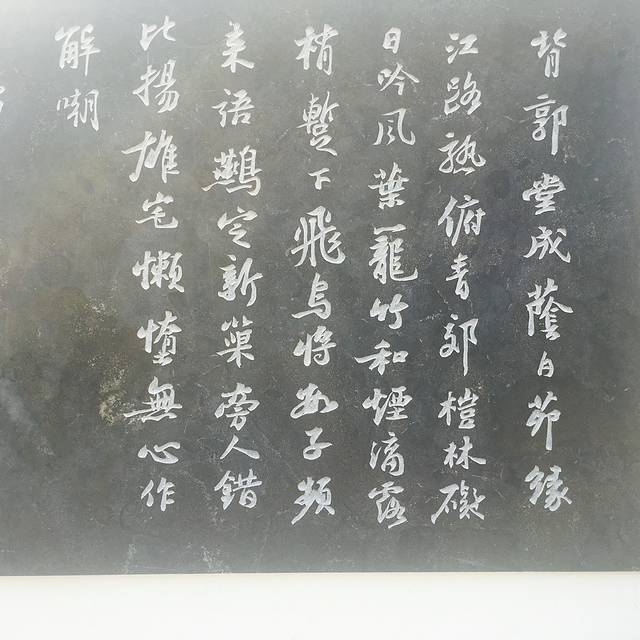 背郭堂成蔭白茆緣
江路熟俯青郊榿林礙
日吟風葉籠竹和煙滴露
梢暫下飛烏將數子頻
來語鷰定新巢旁人錯
比揚雄宅懶惰無心作
解嘲